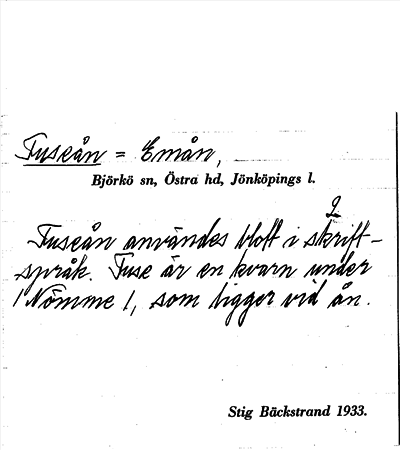 Fuseån = Emån,
Björkö sn, Östra hd, Jönköpings l.
2
Fuseån användes blott i skrift-
språk. Fuse är en kvarn under
/ Nömme /, som ligger vid ån.
Stig Bäckstrand 1933.